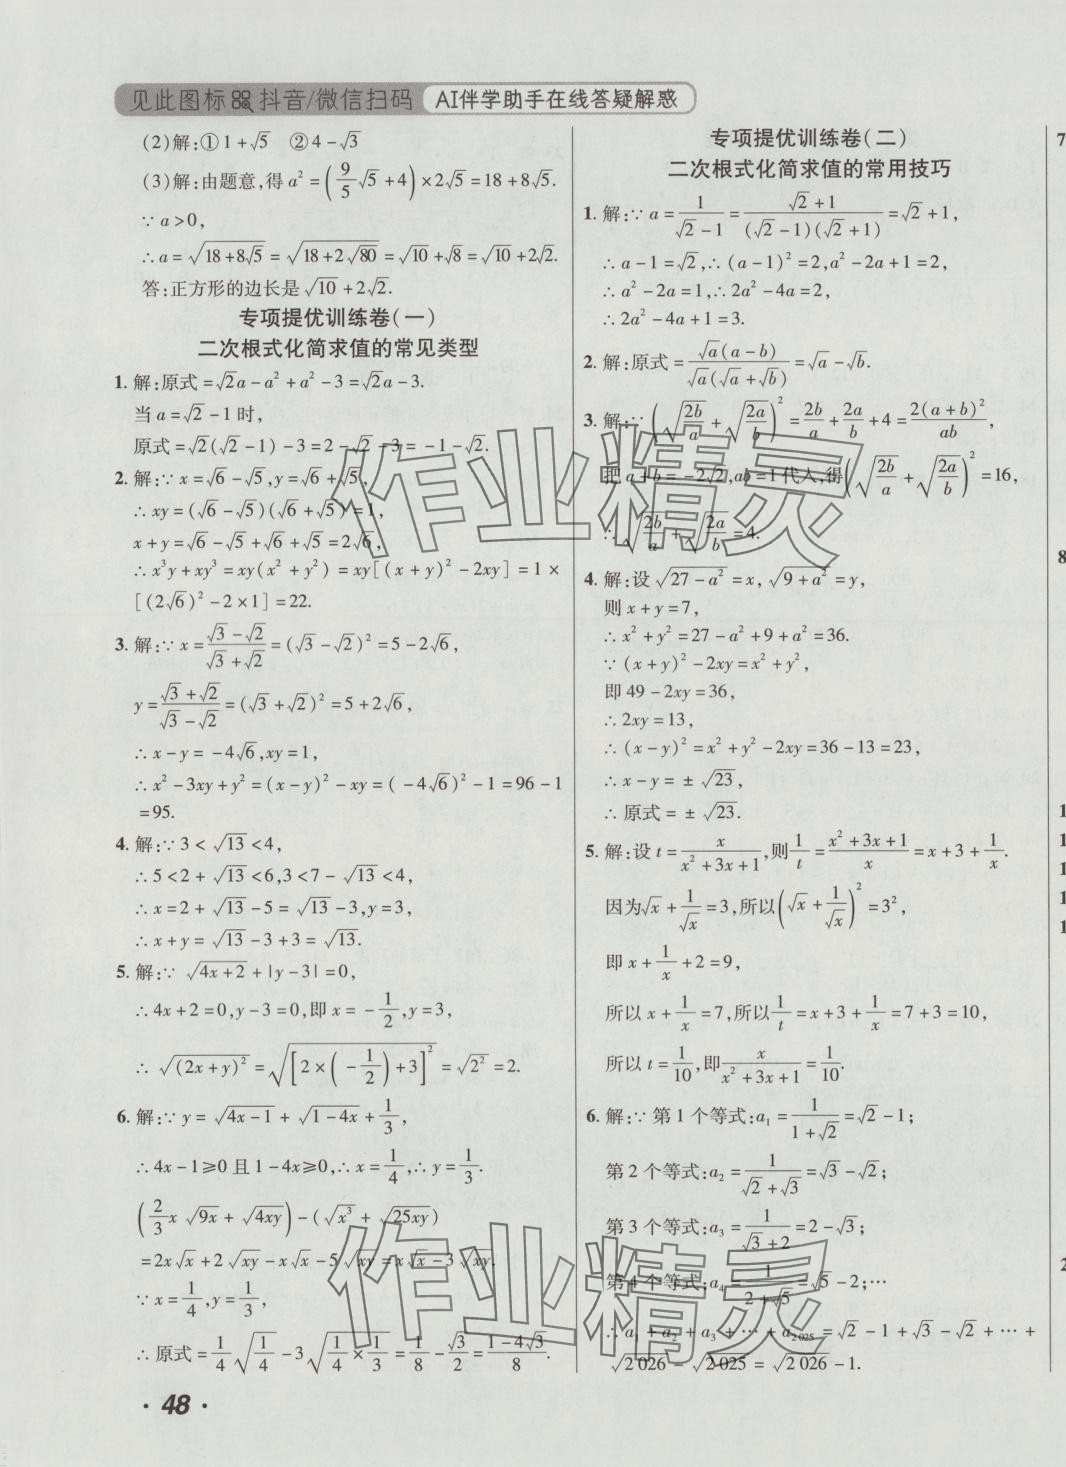 见此图标 抖音/微信扫码 AI伴学助手在线答疑解惑
(2)解:①1+√5 ②4-√3
(3)解:由题意,得a²=(9/5√5+4)×2√5=18+8√5.
∵a>0,
∴a=√(18+8√5)=√(18+2√80)=√10+√8=√10+2√2.
答:正方形的边长是√10+2√2.
专项提优训练卷(一)
二次根式化简求值的常见类型
1.解:原式=√2a-a²+a²-3=√2a-3.
当a=√2-1时,
原式=√2(√2-1)-3=2-√2-3=-1-√2.
2.解:∵x=√6-√5,y=√6+√5,
∴xy=(√6-√5)(√6+√5)=1,
x+y=√6-√5+√6+√5=2√6,
∴x³y+xy³=xy(x²+y²)=xy[(x+y)²-2xy]=1×
[(2√6)²-2×1]=22.
3.解:∵x=(√3-√2)/(√3+√2)=(√3-√2)²=5-2√6,
y=(√3+√2)/(√3-√2)=(√3+√2)²=5+2√6,
∴x-y=-4√6,xy=1,
∴x²-3xy+y²=(x-y)²-xy=(-4√6)²-1=96-1
=95.
4.解:∵3<√13<4,
∴5<2+√13<6,3<7-√13<4,
∴x=2+√13-5=√13-3,y=3,
∴x+y=√13-3+3=√13.
5.解:∵√(4x+2)+|y-3|=0,
∴4x+2=0,y-3=0,即x=-1/2,y=3,
∴√((2x+y)²)=√([2×(-1/2)+3]²)=√(2²)=2.
6.解:∵y=√(4x-1)+√(1-4x)+1/3,
∴4x-1≥0且1-4x≥0,∴x=1/4,∴y=1/3.
(2/3x√(9x)+√(4xy))-(√(x³)+√(25xy))
=2x√x+2√(xy)-x√x-5√(xy)=x√x-3√(xy).
∵x=1/4,y=1/3,
∴原式=1/4√(1/4)-3√(1/4×1/3)=1/8-√3/2=(1-4√3)/8.
·48·
专项提优训练卷(二)
二次根式化简求值的常用技巧
1.解:∵a=1/(√2-1)=(√2+1)/((√2-1)(√2+1))=√2+1,
∴a-1=√2,∴(a-1)²=2,a²-2a+1=2,
∴a²-2a=1,∴2a²-4a=2,
∴2a²-4a+1=3.
2.解:原式=√a(a-b)/(√a(√a+√b))=√a-√b.
3.解:∵(√(2b/a)+√(2a/b))²=2b/a+2a/b+4=2(a+b)²/ab,
把a+b=-2√2,ab=1代入,得(√(2b/a)+√(2a/b))²=16,
∴√(2b/a)+√(2a/b)=4.
4.解:设√(27-a²)=x,√(9+a²)=y,
则x+y=7,
∴x²+y²=27-a²+9+a²=36.
∵(x+y)²-2xy=x²+y²,
即49-2xy=36,
∴2xy=13,
∴(x-y)²=x²+y²-2xy=36-13=23,
∴x-y=±√23,
∴原式=±√23.
5.解:设t=x/(x²+3x+1),则1/t=(x²+3x+1)/x=x+3+1/x.
因为√x+1/√x=3,所以(√x+1/√x)²=3²,
即x+1/x+2=9,
所以x+1/x=7,所以1/t=x+3+1/x=7+3=10,
所以t=1/10,即x/(x²+3x+1)=1/10.
6.解:∵第1个等式:a₁=1/(1+√2)=√2-1;
第2个等式:a₂=1/(√2+√3)=√3-√2;
第3个等式:a₃=1/(√3+2)=2-√3;
第4个等式:a₄=1/(2+√5)=√5-2;…
∴a₁+a₂+a₃+…+a₂₀₂₅=√2-1+√3-√2+…+
√2 026-√2 025=√2 026-1.
7
8
1
1
1
1
1
2
作业精灵
作业精灵